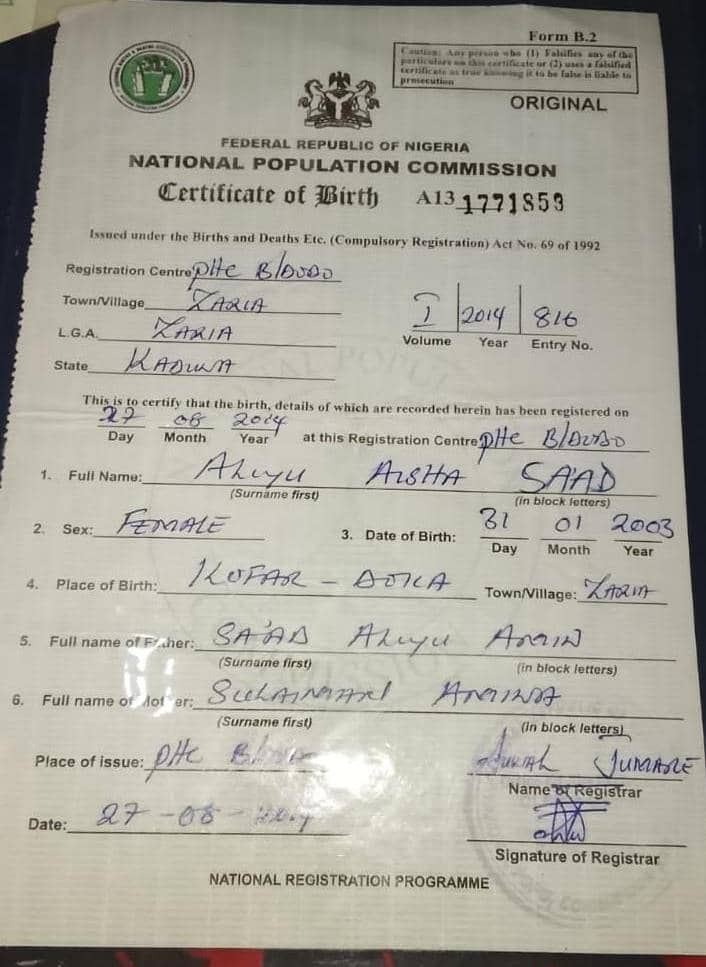 Form B.2
Caution: Any person who (1) Falsifies any of the
particulars on this certificate or (2) uses a falsified
certificate as true knowing it to be false is liable to
prosecution
ORIGINAL
FEDERAL REPUBLIC OF NIGERIA
NATIONAL POPULATION COMMISSION
Certificate of Birth A13 1771859
Issued under the Births and Deaths Etc. (Compulsory Registration) Act No. 69 of 1992
Registration Centre PHC B/DODO
Town/Village ZARIA
L.G.A. ZARIA
State KADUNA
I 2014 816
Volume Year Entry No.
This is to certify that the birth, details of which are recorded herein has been registered on
27 08 2014
Day Month Year at this Registration Centre PHC B/DODO
1. Full Name: ALIYU AISHA SA'AD
(Surname first) (in block letters)
2. Sex: FEMALE 3. Date of Birth: 31 01 2003
Day Month Year
4. Place of Birth: KOFAR - DOKA Town/Village: ZARIA
5. Full name of Father: SA'AD ALIYU AMIN
(Surname first) (in block letters)
6. Full name of Mother: SULAIMAN AMINA
(Surname first) (in block letters)
Place of issue: PHC
JUMARE
Name of Registrar
Date: 27-08-2014
Signature of Registrar
NATIONAL REGISTRATION PROGRAMME